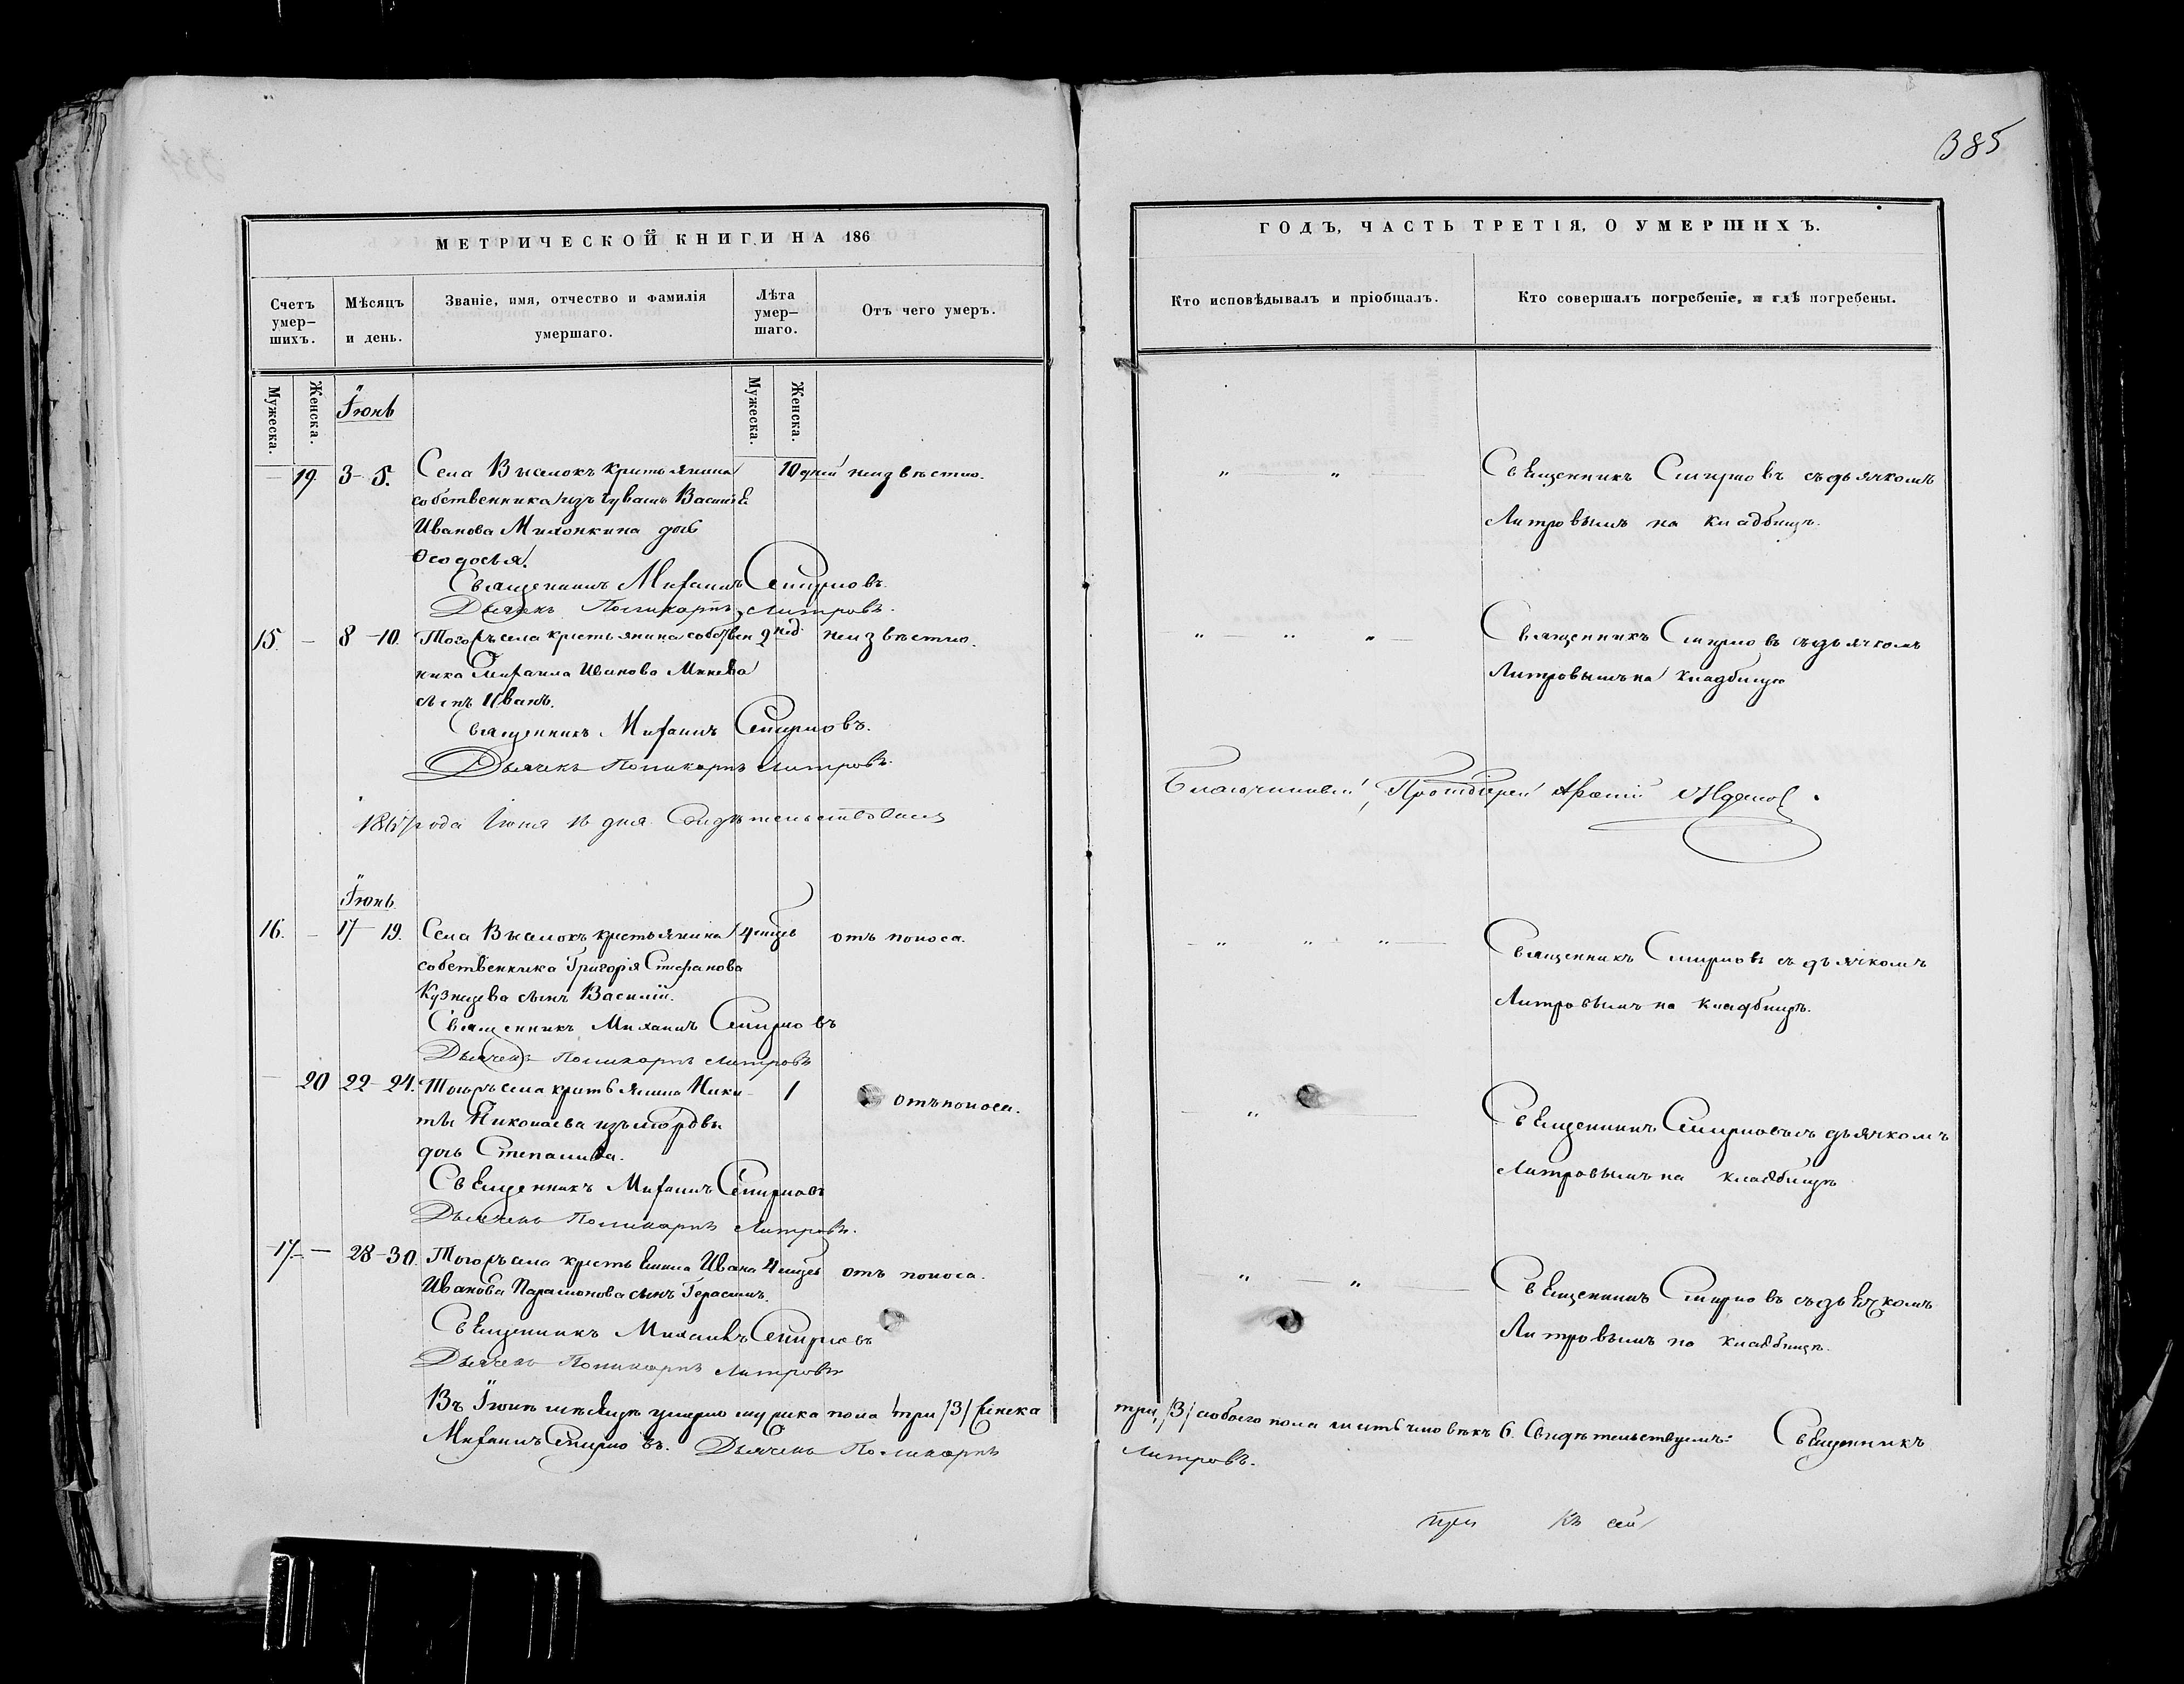 385
МЕТРИЧЕСКОЙ КНИГИ НА 186
Счетъ умер-шихъ.
Мѣсяцъ и день.
Званіе, имя, отчество и фамилія умершаго.
Лѣта умер-шаго.
Отъ чего умеръ.
Мужеска.
Женска.
Мужеска.
Женска.
Іюнь
19. 3-5. Села Выселокъ крестьянина 10 дней неизвѣстно.
собственника изъ чувашъ Василія
Иванова Милонкина дочь
Ѳеодосья.
Священникъ Михаилъ Смирновъ.
Дьячекъ Поликарпъ Литровъ.
15. — 8-10. Того жъ села крестьянина собствен 2 нед. неизвѣстно.
ника Михаила Иванова Минева
сынъ Иванъ.
Священникъ Михаилъ Смирновъ.
Дьячекъ Поликарпъ Литровъ.
года Іюня 16 дня Свидѣтельствовалъ
Іюнь
16. — 17-19. Села Выселокъ крестьянина 4 мцевъ отъ поноса.
собственника Григорія Стефанова
Кузнецева сынъ Василій.
Священникъ Михаилъ Смирновъ
Дьячекъ Поликарпъ Литровъ
— 20 22-24. Того жъ села крестьянина Ники- 1 отъ поноса.
ты Николаева изъ мордвы
дочь Степанида.
Священникъ Михаилъ Смирновъ
Дьячекъ Поликарпъ Литровъ.
17. — 28-30. Того жъ села крестьянина Ивана 4 мцевъ отъ поноса.
Иванова Парамонова сынъ Герасимъ.
Священникъ Михаилъ Смирновъ
Дьячекъ Поликарпъ Литровъ
Въ Іюнѣ мѣсяцѣ умерло мужска пола три /3/ женска
Михаилъ Смирновъ. Дьячекъ Поликарпъ
ГОДЪ, ЧАСТЬ ТРЕТІЯ, О УМЕРШИХЪ.
Кто исповѣдывалъ и пріобщалъ.
Кто совершалъ погребеніе, и гдѣ погребены.
" " Священникъ Смирновъ съ дьячкомъ
Литровымъ на кладбищѣ.
" " " Священникъ Смирновъ съ дьячкомъ
Литровымъ на кладбищѣ
Благочинный, Протоіерей
" " " Священникъ Смирновъ съ дьячкомъ
Литровымъ на кладбищѣ.
" Священникъ Смирновъ съ дьячкомъ
Литровымъ на кладбищѣ
" " Священникъ Смирновъ съ дьячкомъ
Литровымъ на кладбищѣ.
три /3/ обоего пола шесть человѣкъ 6. Свидѣтельствуемъ: Священникъ
Литровъ.